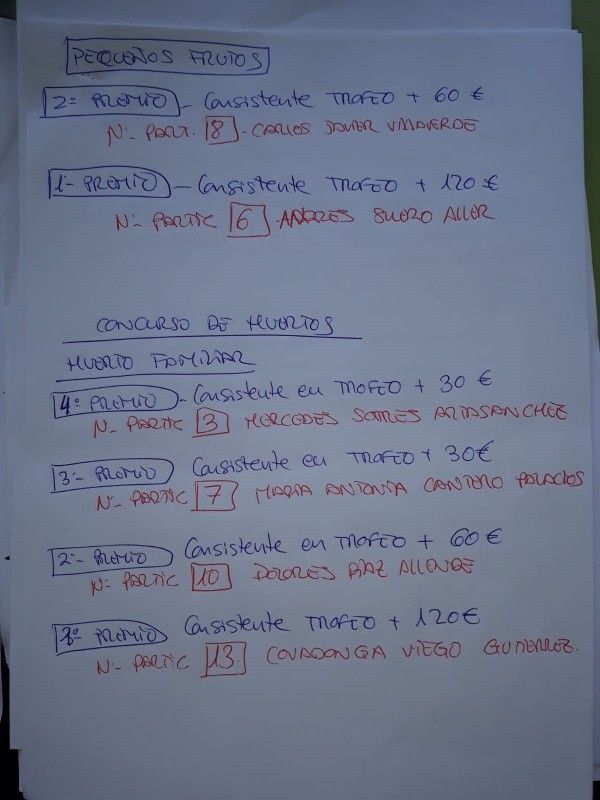 PEQUEÑOS FRUTOS
2º PREMIO - Consistente TROFEO + 60 €
Nº- PART. 8 - CARLOS JAVIER VILLAVERDE
1º- PREMIO - Consistente TROFEO + 120 €
Nº- PARTIC 6 - ANDRES SUERO ALLER
CONCURSO DE HUERTOS
HUERTO FAMILIAR
4º PREMIO - Consistente en TROFEO + 30 €
Nº- PARTIC 3 MERCEDES SOMRES ARTASANCHEZ
3º- PREMIO Consistente en TROFEO + 30€
Nº- PARTIC 7 MARIA ANTONIA CANTERO PALACIOS
2º- PREMIO Consistente en TROFEO + 60€
Nº- PARTIC 10 DOLORES DIAZ ALLENDE
1º PREMIO Consistente TROFEO + 120€
Nº- PARTIC 13 COVADONGA VIEGO GUTIERREZ.